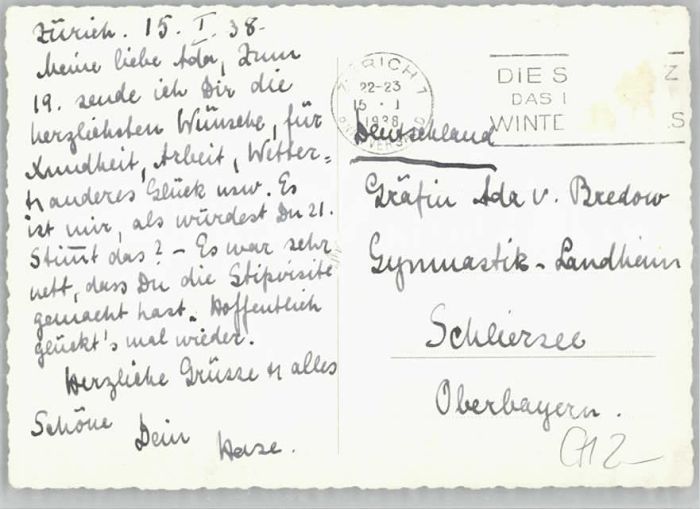 Zürich. 15. I. 38.
Meine liebe Ada, Zum
19. sende ich Dir die
herzlichsten Wünsche, für
Xundheit, Arbeit, Wetter=
u anderes Glück usw. Es
ist mir, als würdest Du 21.
Stimt das? – Es war sehr
nett, dass Du die Stipvisite
gemacht hast. Hoffentlich
glückt's mal wieder.
Herzliche Grüsse u alles
Schöne Dein Hase.
ZÜRICH 7
22-23
15 · I
1938
DIE S Z
DAS I
WINTE S
Deutschland
Gräfin Ada v. Bredow
Gymnastik-Landheim
Schliersee
Oberbayern.